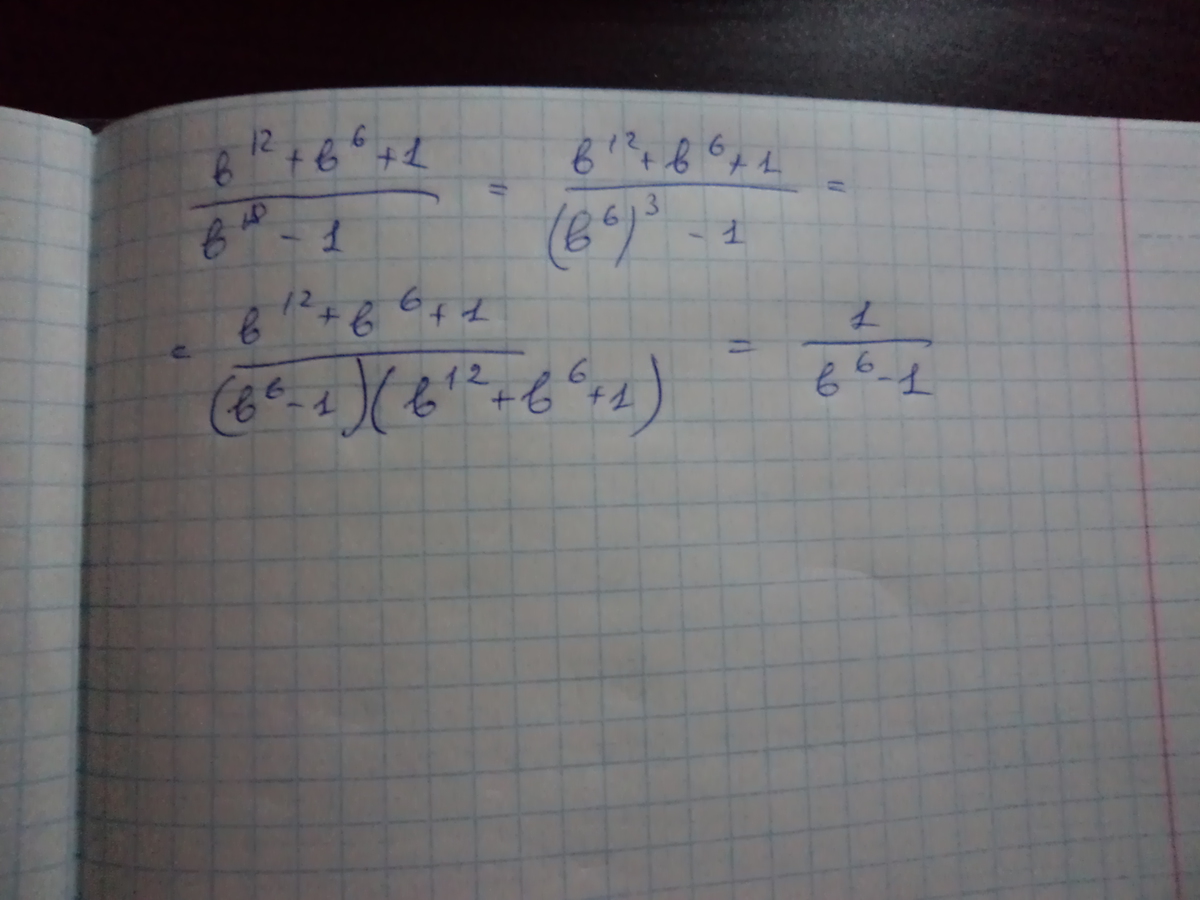 (в^12 + в^6 + 1)/(в^18 - 1) = (в^12 + в^6 + 1)/((в^6)^3 - 1) =
= (в^12 + в^6 + 1)/((в^6 - 1)(в^12 + в^6 + 1)) = 1/(в^6 - 1)